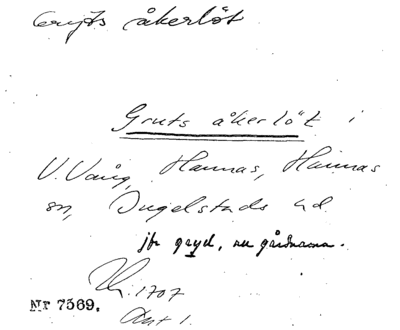 Gryts åkerlöt
Gruts åkerlöt i
V. Vång, Hannas, Hannas
sn, Ingelstads hd
jfr gryd, nu gårdnamn.
1707
Akt 1.
Nr 7569.